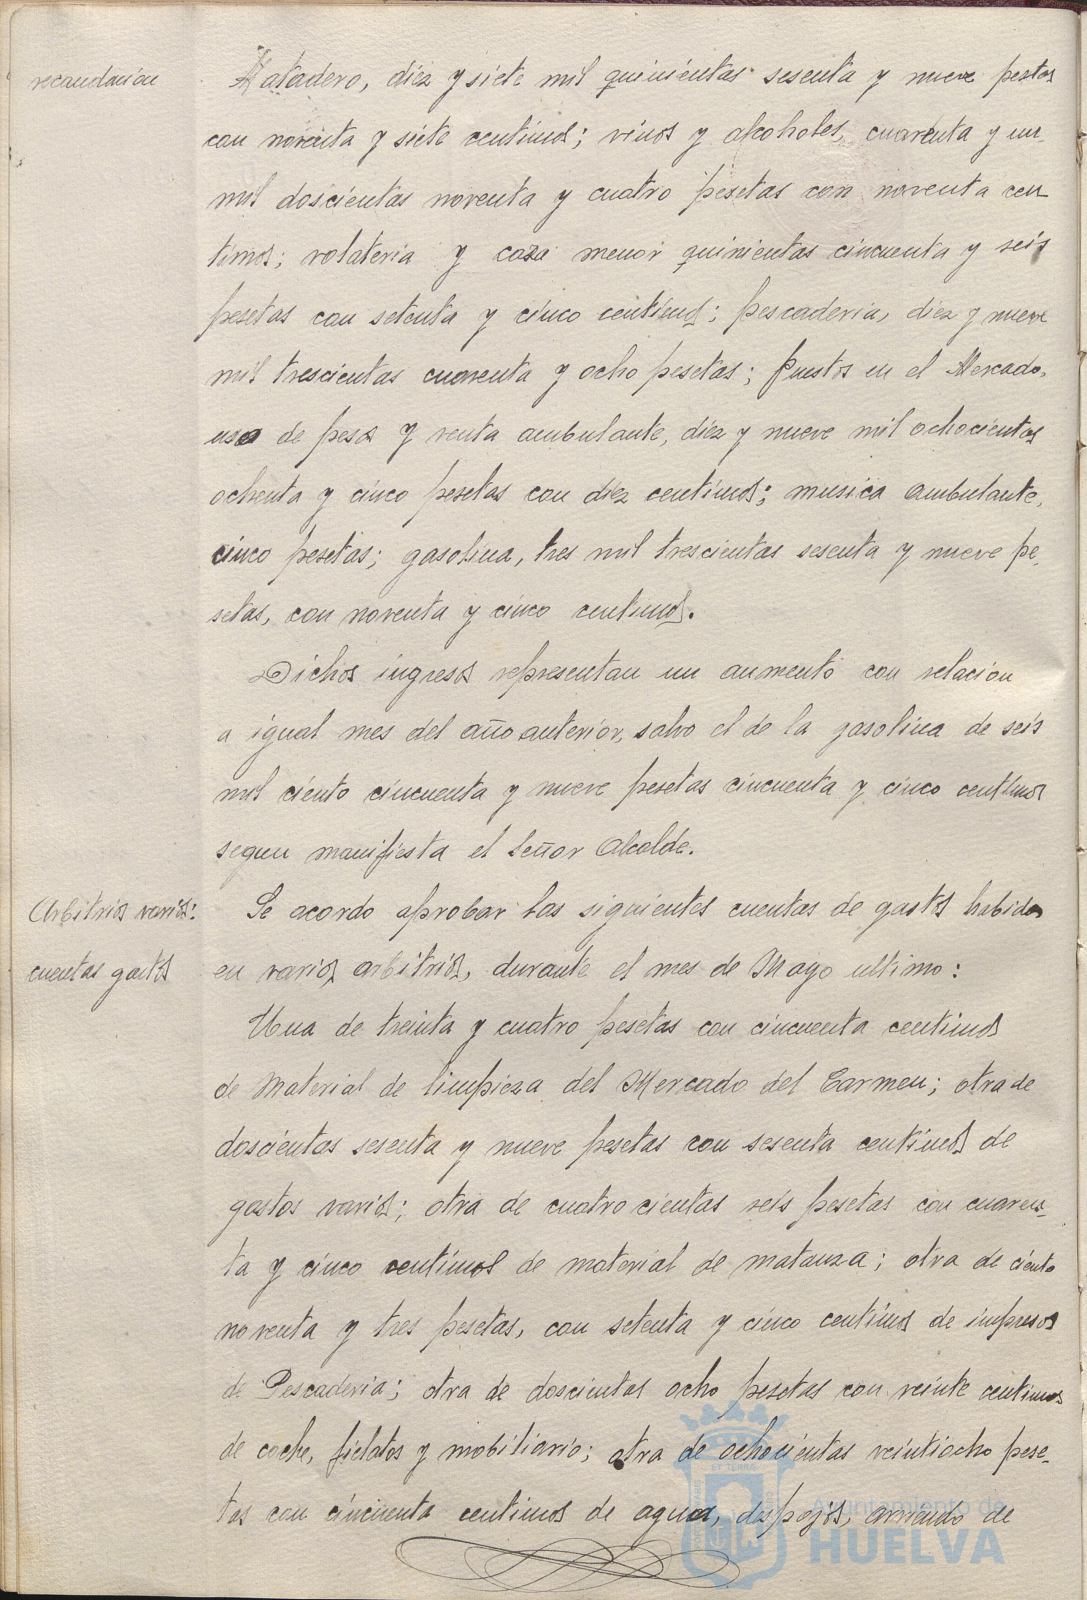 recaudación
Matadero, diez y siete mil quinientas sesenta y nueve pestas
con noventa y siete centimos; vinos y alcoholes, cuarenta y un
mil doscientas noventa y cuatro pesetas con noventa cen
timos; volateria y caza menor quinientas cincuenta y seis
pesetas con setenta y cinco centimos; pescaderia, diez y nueve
mil trescientas cuarenta y ocho pesetas; Puestos en el Mercado,
uso de pesos y venta ambulante, diez y nueve mil ochocientas
ochenta y cinco pesetas con diez centimos; musica ambulante,
cinco pesetas; gasolina, tres mil trescientas sesenta y nueve pe-
setas, con noventa y cinco centimos.
Dichos ingresos representan un aumento con relacion
a igual mes del año anterior, salvo el de la gasolina de seis
mil ciento cincuenta y nueve pesetas cincuenta y cinco centimos
segun manifiesta el Señor Alcalde.
Arbitrios varios:
cuentas gastos
Se acordo aprobar las siguientes cuentas de gastos habidos
en varios arbitrios, durante el mes de Mayo ultimo:
Una de treinta y cuatro pesetas con cincuenta centimos
de Material de limpieza del Mercado del Carmen; otra de
doscientas sesenta y nueve pesetas con sesenta centimos de
gastos varios; otra de cuatrocientas seis pesetas con cuaren-
ta y cinco centimos de material de matanza; otra de ciento
noventa y tres pesetas, con setenta y cinco centimos de impresos
de Pescaderia; otra de doscientas ocho pesetas con veinte centimos
de coche, fielatos y mobiliario; otra de ochocientas veintiocho pese-
tas con cincuenta centimos de agua, despojos, arriendo de
Ayuntamiento de
HUELVA